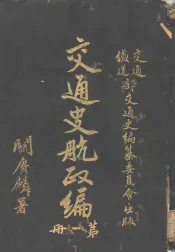 交通
鐵道部交通史編纂委員會出版
交通史航政編
第一冊
關賡麟署